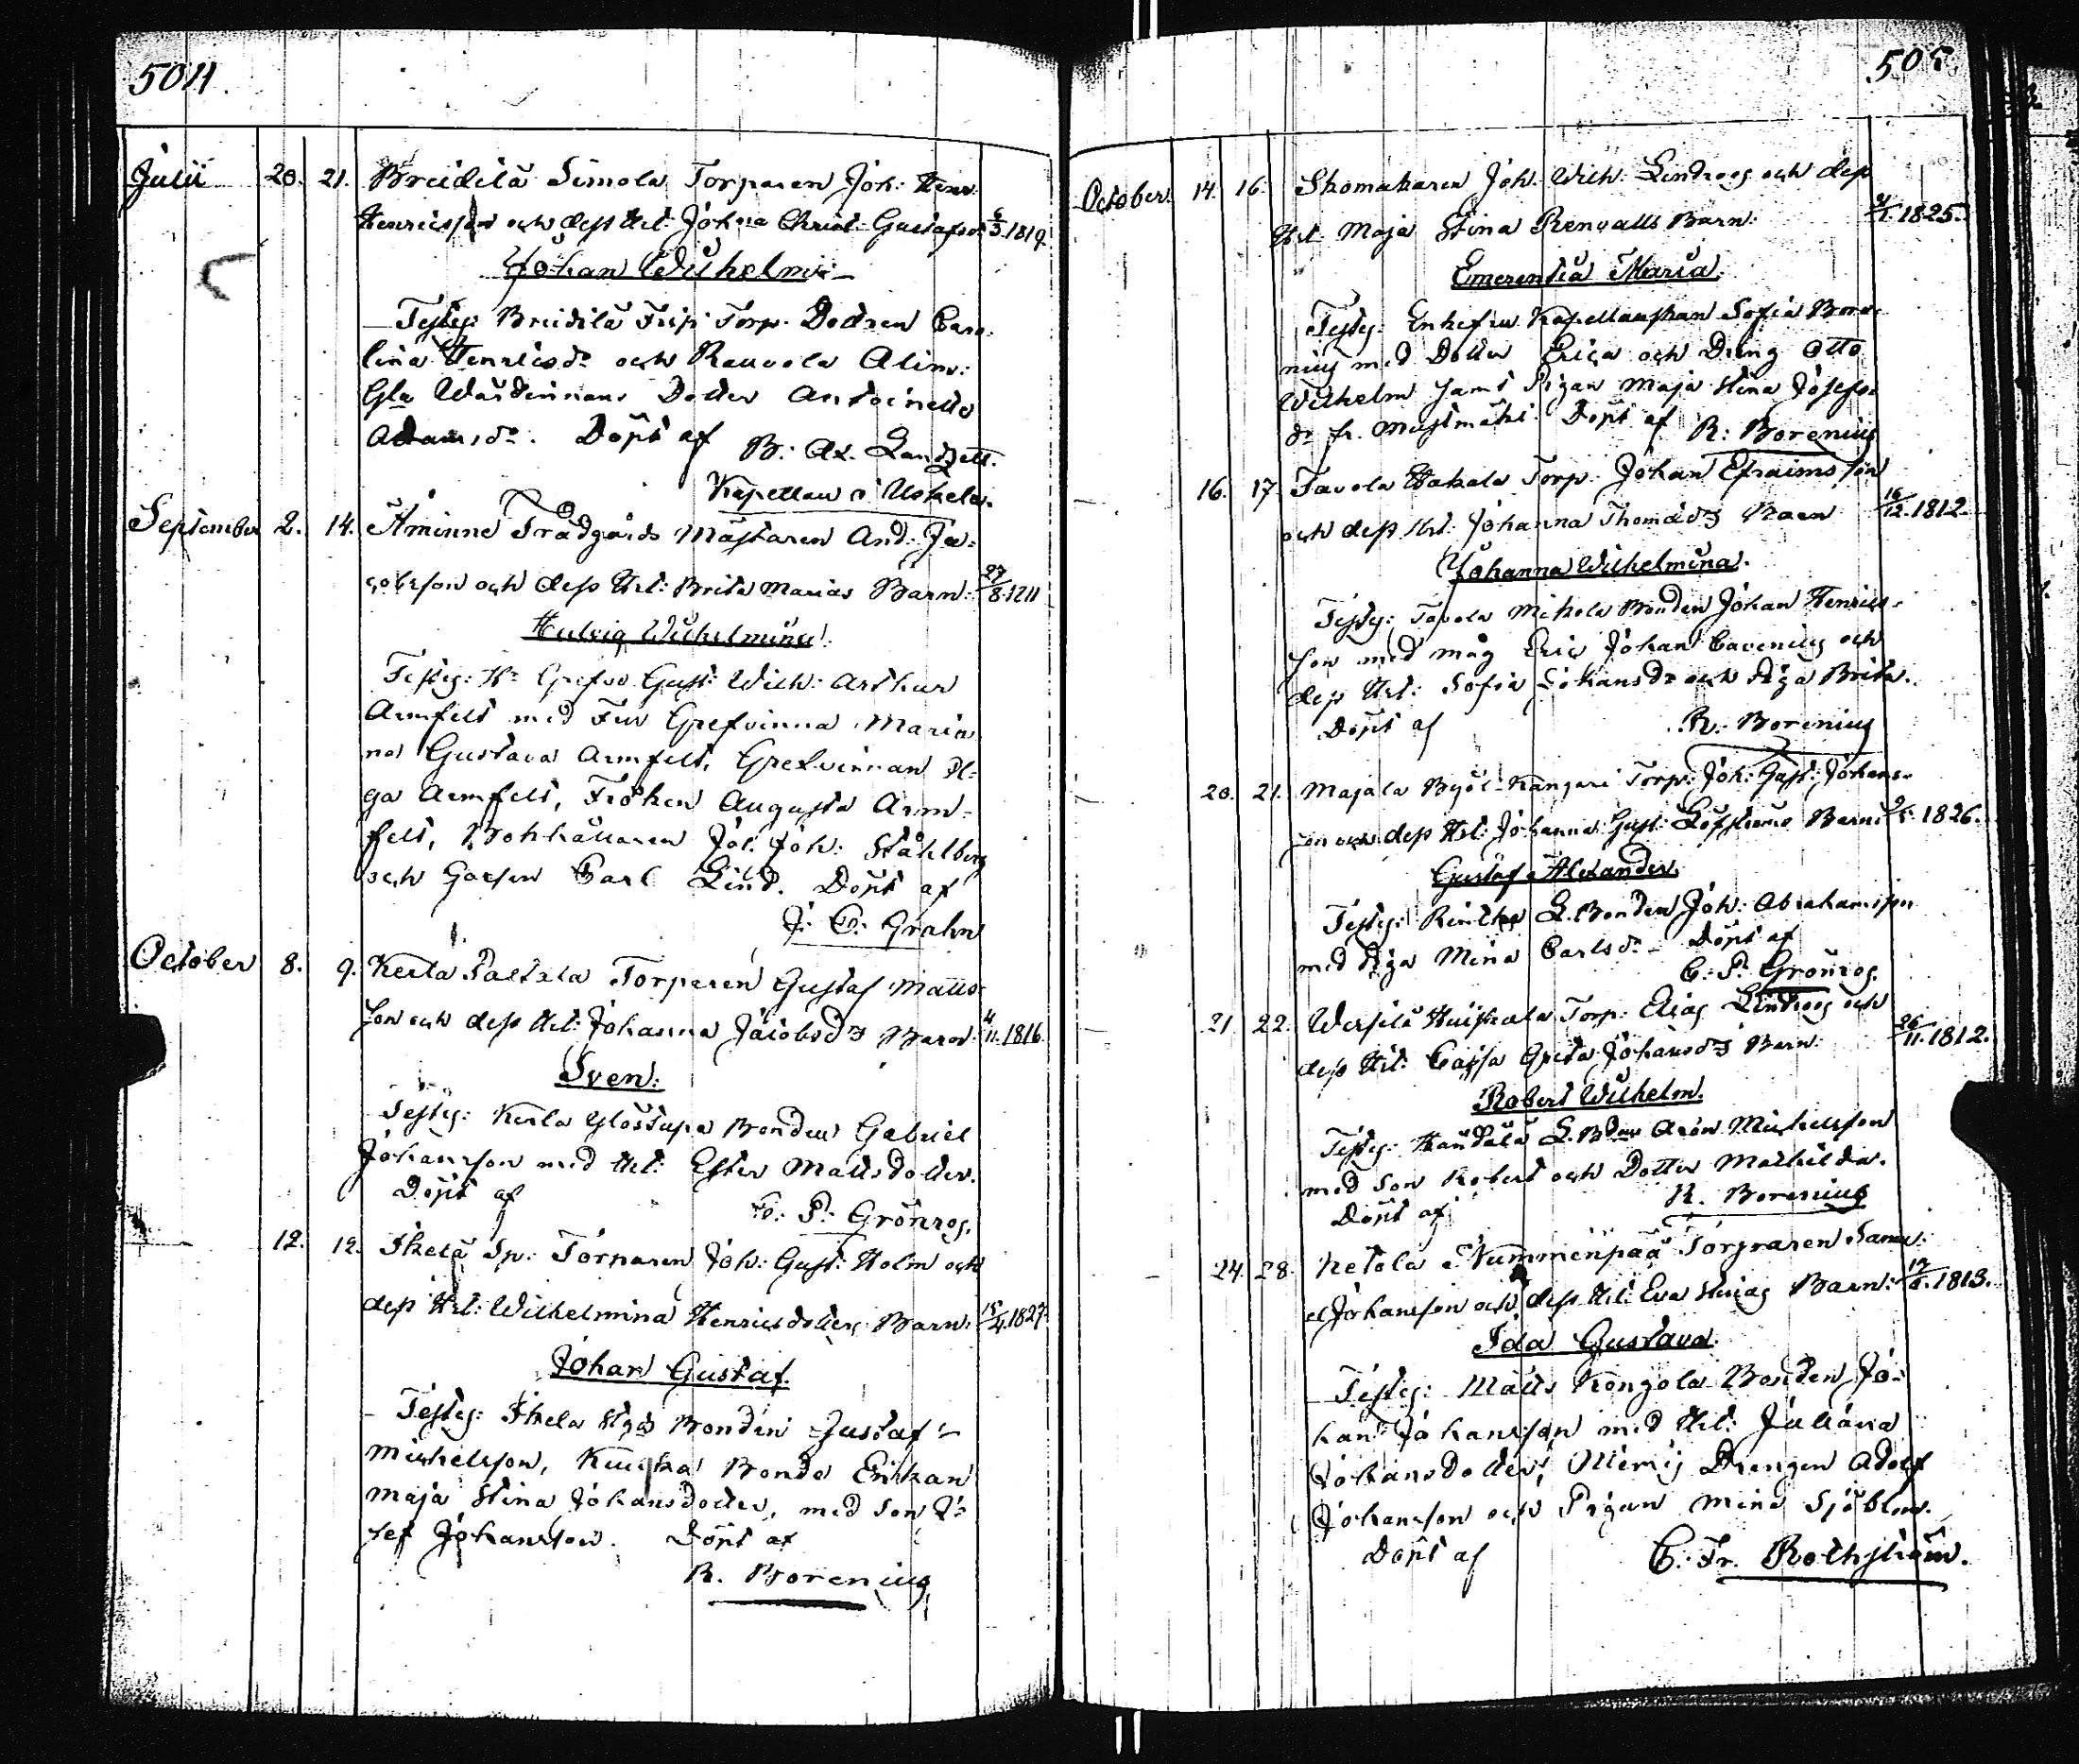 504.
Julii 20. 21. Breidilä Simola Torparen Joh: Henr.
Henricsson och dess Hst: Joh:na Christ: Gustafsd. 6/3. 1819.
Johan Wilhelm
Testes: Breidilä Torp. Dottren Caro-
lina Henricsdr och Rauvola Alin:
Gla Wärdinnans Dotter Antoinette
Adamsdr. Döpt af B: Ax. Landzett.
Kapellan i Uskela.
September 2. 14. Åminne Trädgårds Mästaren And: Ja-
cobsson och dess Hst: Brita Marias Barn: 27/8. 1811
Hedvig Wilhelmina.
Testes: Hr Grefve Gust: Wilh: Arthur
Armfelt med Fru Grefvinna Maria
na Gustava Armfelt, Grefvinnan Ol-
ga Armfelt, Fröken Augusta Arm-
felt, Bokhållaren Joh: Ståhlberg
och Carl Lind. Döpt af
J: E: Grahn
October 8. 9. Kerla Paltala Torparen Gustaf Matts-
son och dess Hst: Johanna Jacobsdrs Barn. 4/11. 1816.
Sven.
Testes: Kerla Ylöstupa Bonden Gabriel
Johansson med Hst: Ester Mattsdotter.
Döpt af C: P: Grönros.
12. 12. Ihelä Sp: Torparen Joh: Gust: Holm och
dess Hst: Wilhelmina Henricsdotters Barn. 15/4. 1827.
Johan Gustaf.
Testes: Bonden Gustaf
Michelsson, Bonde Enkan
Maja Stina Johansdotter, med Son Jo-
sef Johansson. Döpt af
R. Borenius
505.
October. 14. 16. Skomakaren Joh. Wilh. Lindroos och dess
Hst. Maja Stina Renvalls Barn. 1825.
Emerentia Maria.
Testes: Enkefru Kapellanskan Sofia Bore-
nius med Dotter Erica och Dräng Otto
Wilhelm samt Pigan Maja Stina Josefs-
dr fr. Döpt af R: Borenius
16. 17. Tavola Hakala Torp: Johan Efraimsson
och dess Hst: Johanna Thomædrs Barn 16/12. 1812.
Johanna Wilhelmina.
Testes: Tavola Mikola Bonden Johan Henrics-
son med måg Eric Johan Cavenius och
dess Hst: Sofia Johansdr och Piga Brita.
Döpt af R. Borenius
20. 21. Majala Byöl-Kangari Torp: Joh: Gust: Johans-
son och dess Hst: Johanna Gust: Löfströms Barn: 1826.
Gustaf Alexander.
Testes: L. Bonden Joh: Abrahamsson
med Piga Mina Carlsdr. Döpt af
C: P: Grönros.
21. 22. Torp: Elias Lindroos och
dess Hst: Caisa Greta Johansdrs Barn 26/11. 1812.
Robert Wilhelm.
Testes: L. Bden Aron Michelsson
med Son Robert och Dotter Mathilda.
Döpt af R. Borenius
24. 28. Ketola Nummenpää Torparen Samu-
el Johansson och dess Hst: Eva Stinas Barn: 1813.
Ida Gustava.
Testes: Matts Kongola Bonden Jo-
han Johansson med Hst: Juliana
Johansdotter, Drengen Adolf
Johansson och Pigan Mina Sjöblom.
Döpt af C. Fr. Rothström.